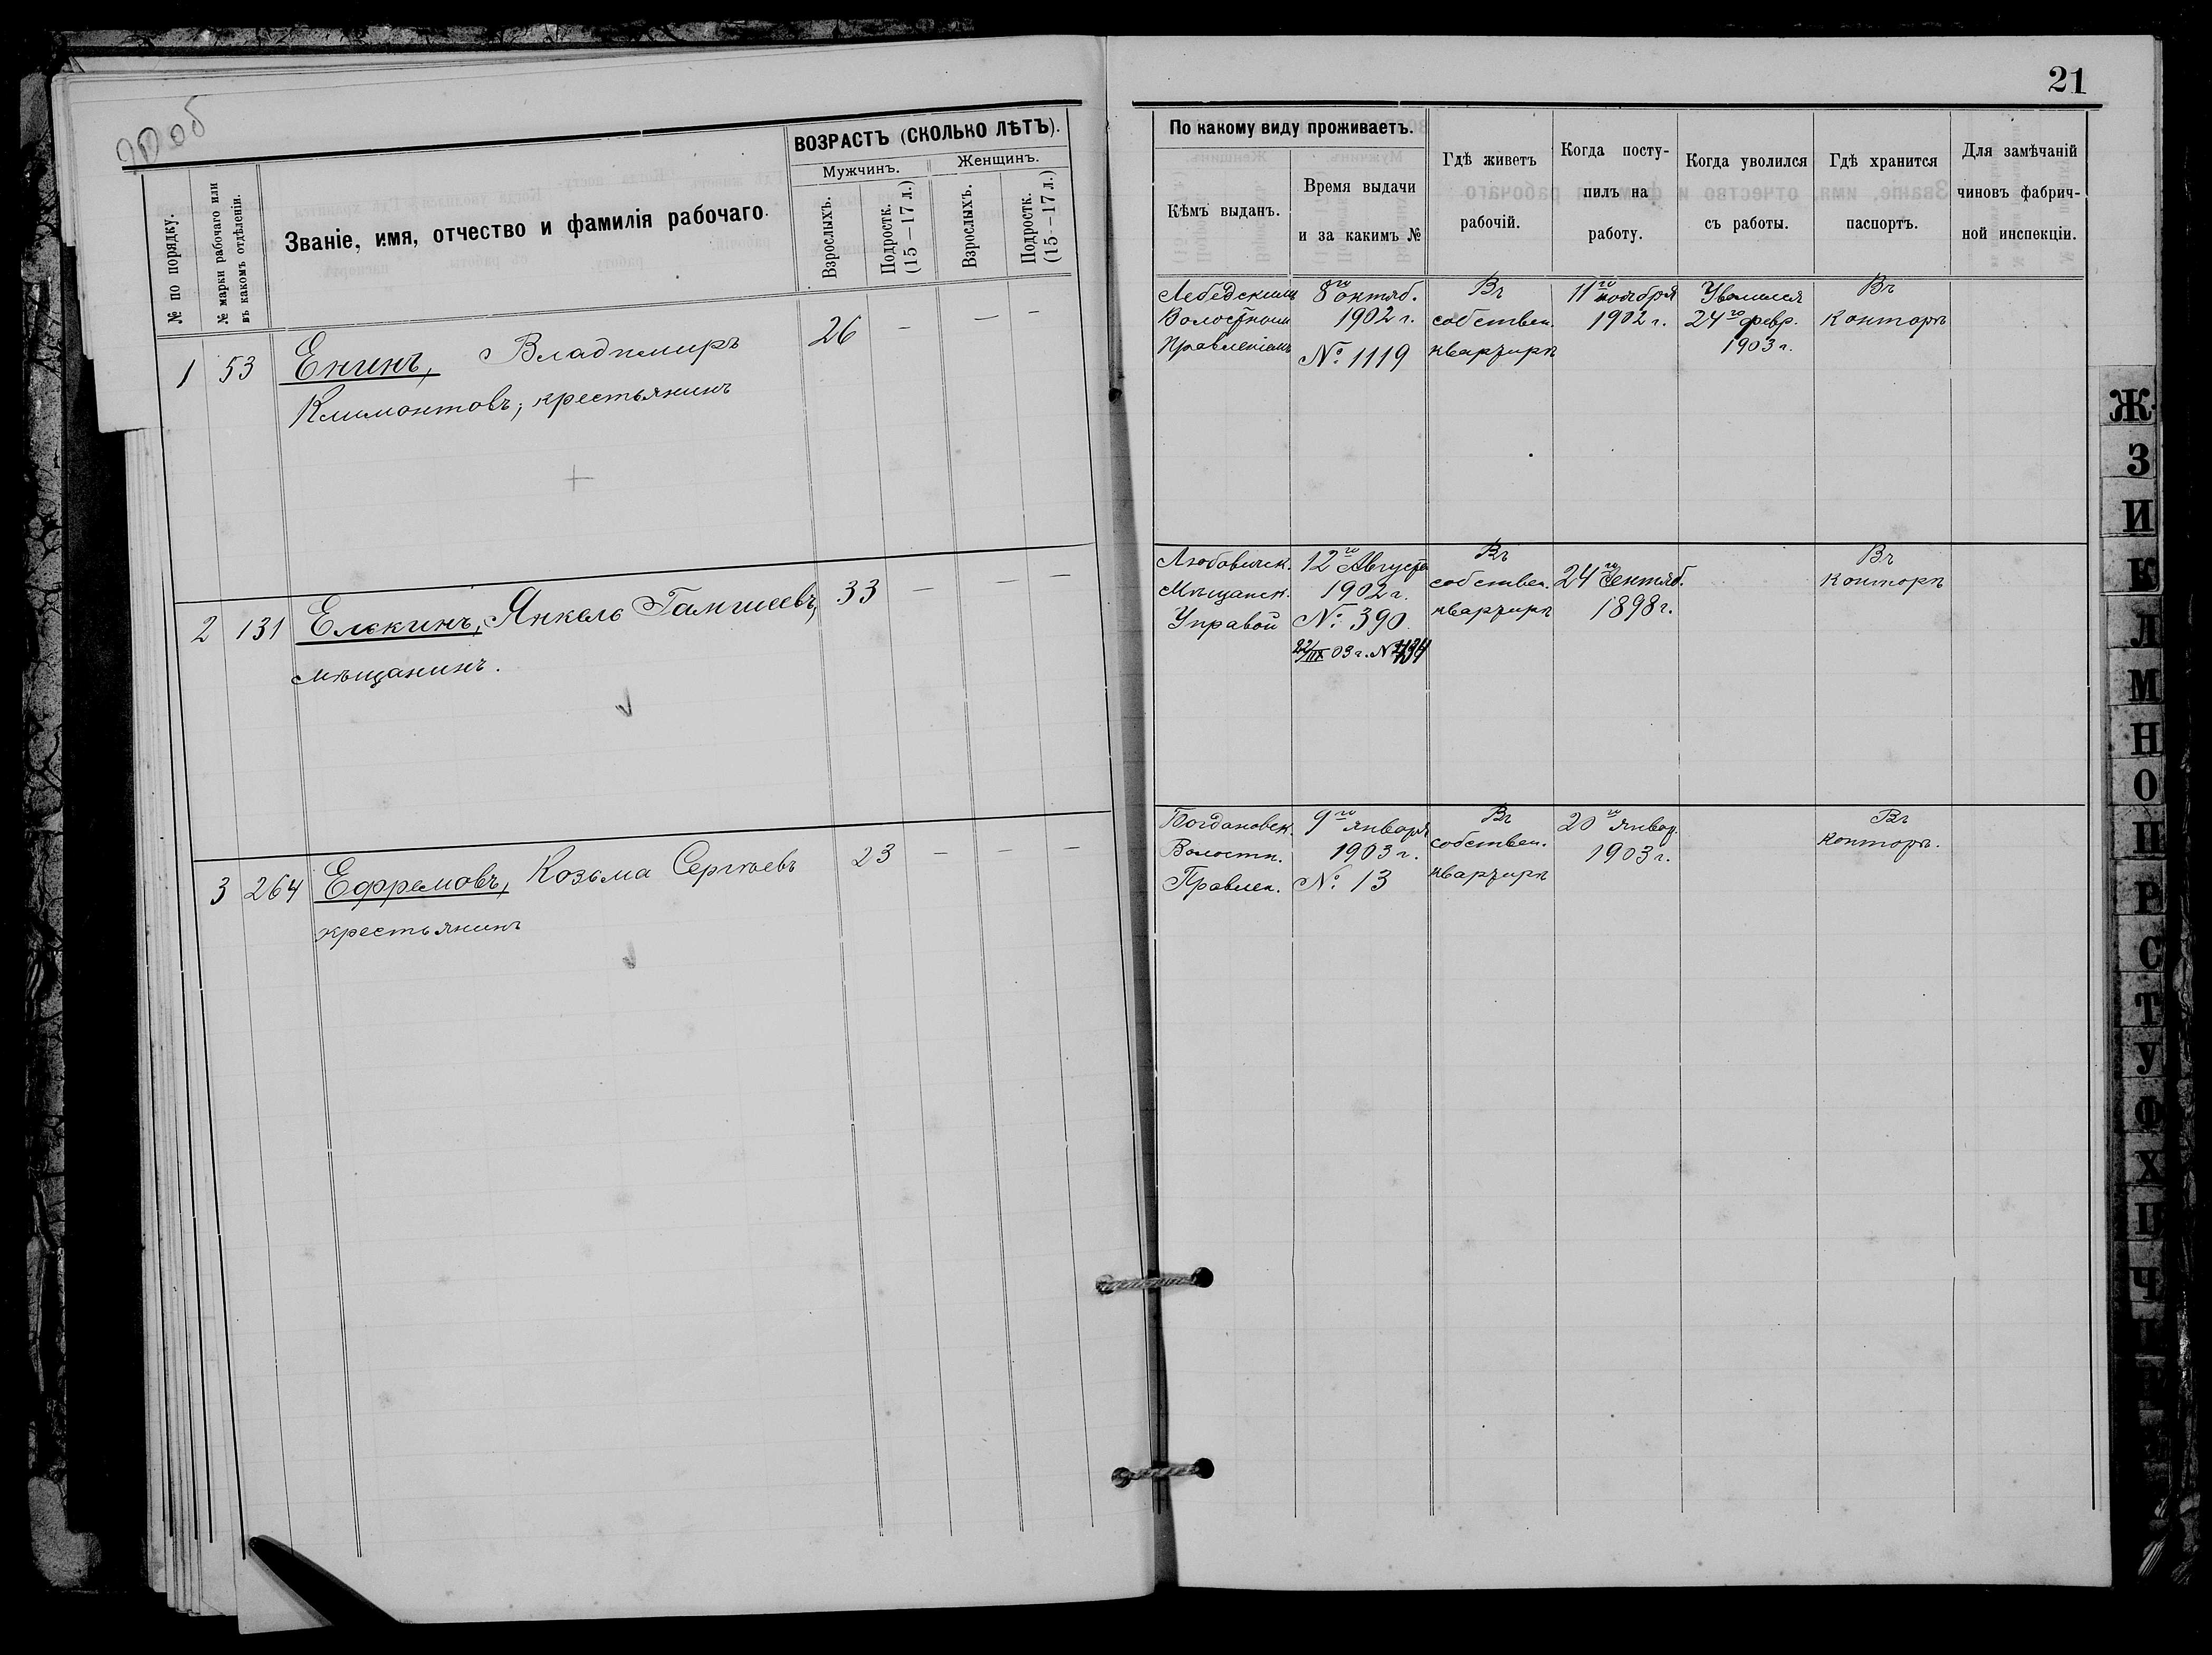 20 об
21
№ по порядку.
№ марки рабочаго или
въ какомъ отдѣленіи.
Званіе, имя, отчество и фамилія рабочаго.
ВОЗРАСТЪ (СКОЛЬКО ЛѢТЪ).
Мужчинъ.
Женщинъ.
Взрослыхъ.
Подростк.
(15—17 л.)
Взрослыхъ.
Подростк.
(15—17 л.)
По какому виду проживаетъ.
Кѣмъ выданъ.
Время выдачи
и за какимъ №
Гдѣ живетъ
рабочій.
Когда посту-
пилъ на
работу.
Когда уволился
съ работы.
Гдѣ хранится
паспортъ.
Для замѣчаній
чиновъ фабрич-
ной инспекціи.
1 53 Енинъ, Владимиръ 26 — — —
Климонтовъ, крестьянинъ
Лебедскимъ
Волостным
Правленіемъ
8го октяб.
1902 г.
№ 1119
Въ
собствен.
квартирѣ
11го ноября
1902 г.
Уволился
24го февр.
1903 г.
Въ
Конторѣ
2 131 Елькинъ, Янкель 33 — — —
мѣщанинъ.
Любавичск.
Мѣщанск.
Управой
12го Августа
1902 г.
№ 390
03 г. №
Въ
собствен.
квартирѣ
24го Сентяб.
1898 г.
Въ
конторѣ
3 264 Ефремовъ, Козьма Сергѣевъ 23 — — —
крестьянинъ
Богдановск.
Волостн.
Правлен.
9го января
1903 г.
№ 13
Въ
собствен.
квартирѣ
20го январ.
1903 г.
Въ
конторѣ.
Ж
З
И
К
Л
М
Н
О
П
Р
С
Т
У
Ф
Х
Ц
Ч